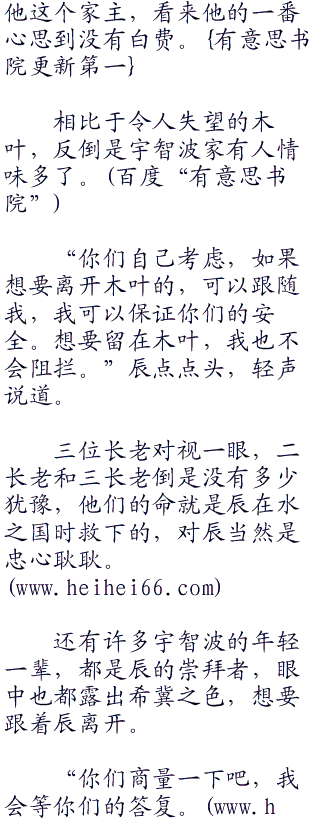 他这个家主，看来他的一番
心思到没有白费。{有意思书
院更新第一}
相比于令人失望的木
叶，反倒是宇智波家有人情
味多了。(百度“有意思书
院”)
“你们自己考虑，如果
想要离开木叶的，可以跟随
我，我可以保证你们的安
全。想要留在木叶，我也不
会阻拦。”辰点点头，轻声
说道。
三位长老对视一眼，二
长老和三长老倒是没有多少
犹豫，他们的命就是辰在水
之国时救下的，对辰当然是
忠心耿耿。
(www.heihei66.com)
还有许多宇智波的年轻
一辈，都是辰的崇拜者，眼
中也都露出希冀之色，想要
跟着辰离开。
“你们商量一下吧，我
会等你们的答复。(www.h